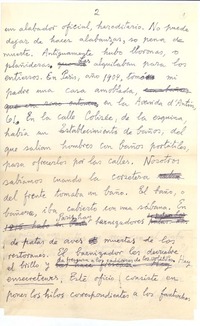 2
un alabador oficial, hereditario. No puede
dejar de hacer alabanzas, so pena de
muerte. Antiguamente hubo lloronas, o
plañideras, alquilaban para los
entierros. En París, año 1909, tomó mi
padre una casa amoblada,
en la Avenida d'Antin
61. En la calle Colisée, de la esquina,
había un Establecimiento de baños, del
que salían hombres con baños portátiles,
para ofrecerlos por las calles. Nosotros
sabíamos cuando la cocotera
del frente tomaba un baño. El baño, o
bañera, iba cubierto con una sábana. En
París hay barnizadores
de patas de aves muertas de los
restoranes. El barnizador les devuelve
el brillo y
Hay
ensecreteurs. Este oficio consiste en
poner los hilos correspondientes a los fantoches